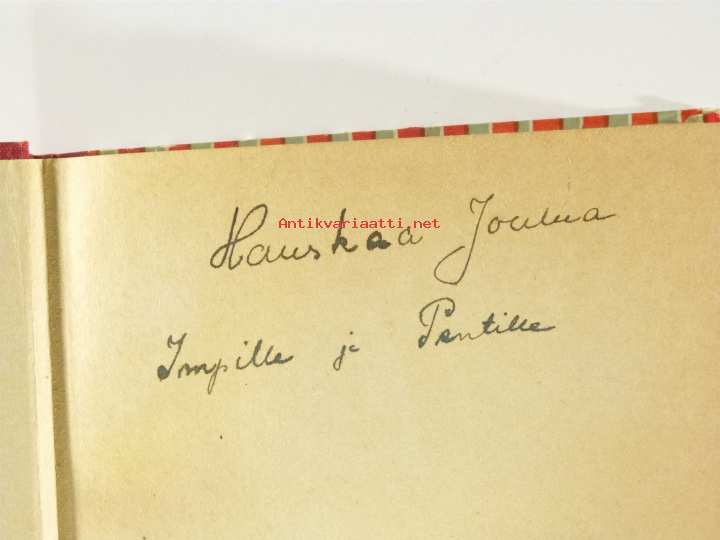 Hauskaa Joulua
Antikvariaatti.net
Impille ja Pentille